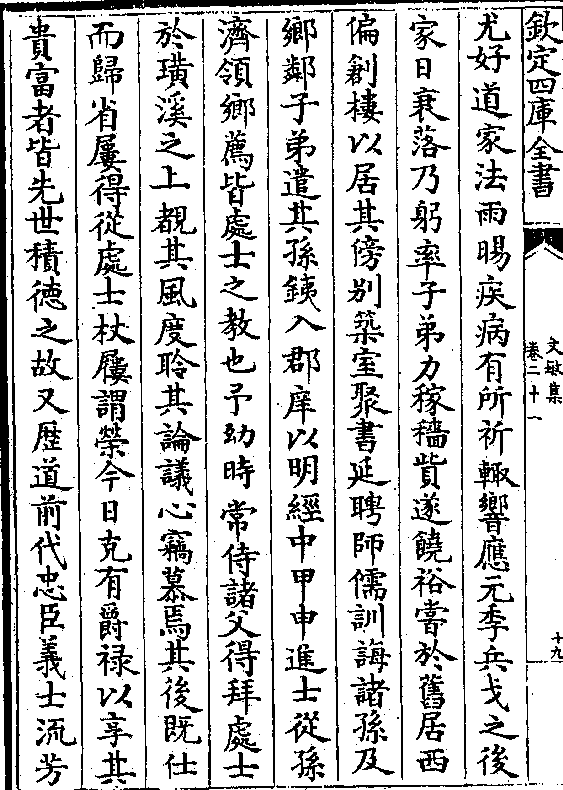 欽定四庫全書
文敏集
卷二十一
十九
尤好道家法雨暘疾病有所祈輙響應元季兵戈之後
家日衰落乃躬率子弟力稼穡貲遂饒裕嘗於舊居西
偏剏樓以居其傍别築室聚書延聘師儒訓誨諸孫及
鄉鄰子弟遣其孫銕入郡庠以明經中甲申進士從孫
濟領鄉薦皆處士之教也予幼時常侍諸父得拜處士
於璜溪之上覩其風度聆其論議心竊慕焉其後既仕
而歸省屢得從處士杖屨謂榮今日克有爵禄以享其
貴富者皆先世積德之故又歴道前代忠臣義士流芳